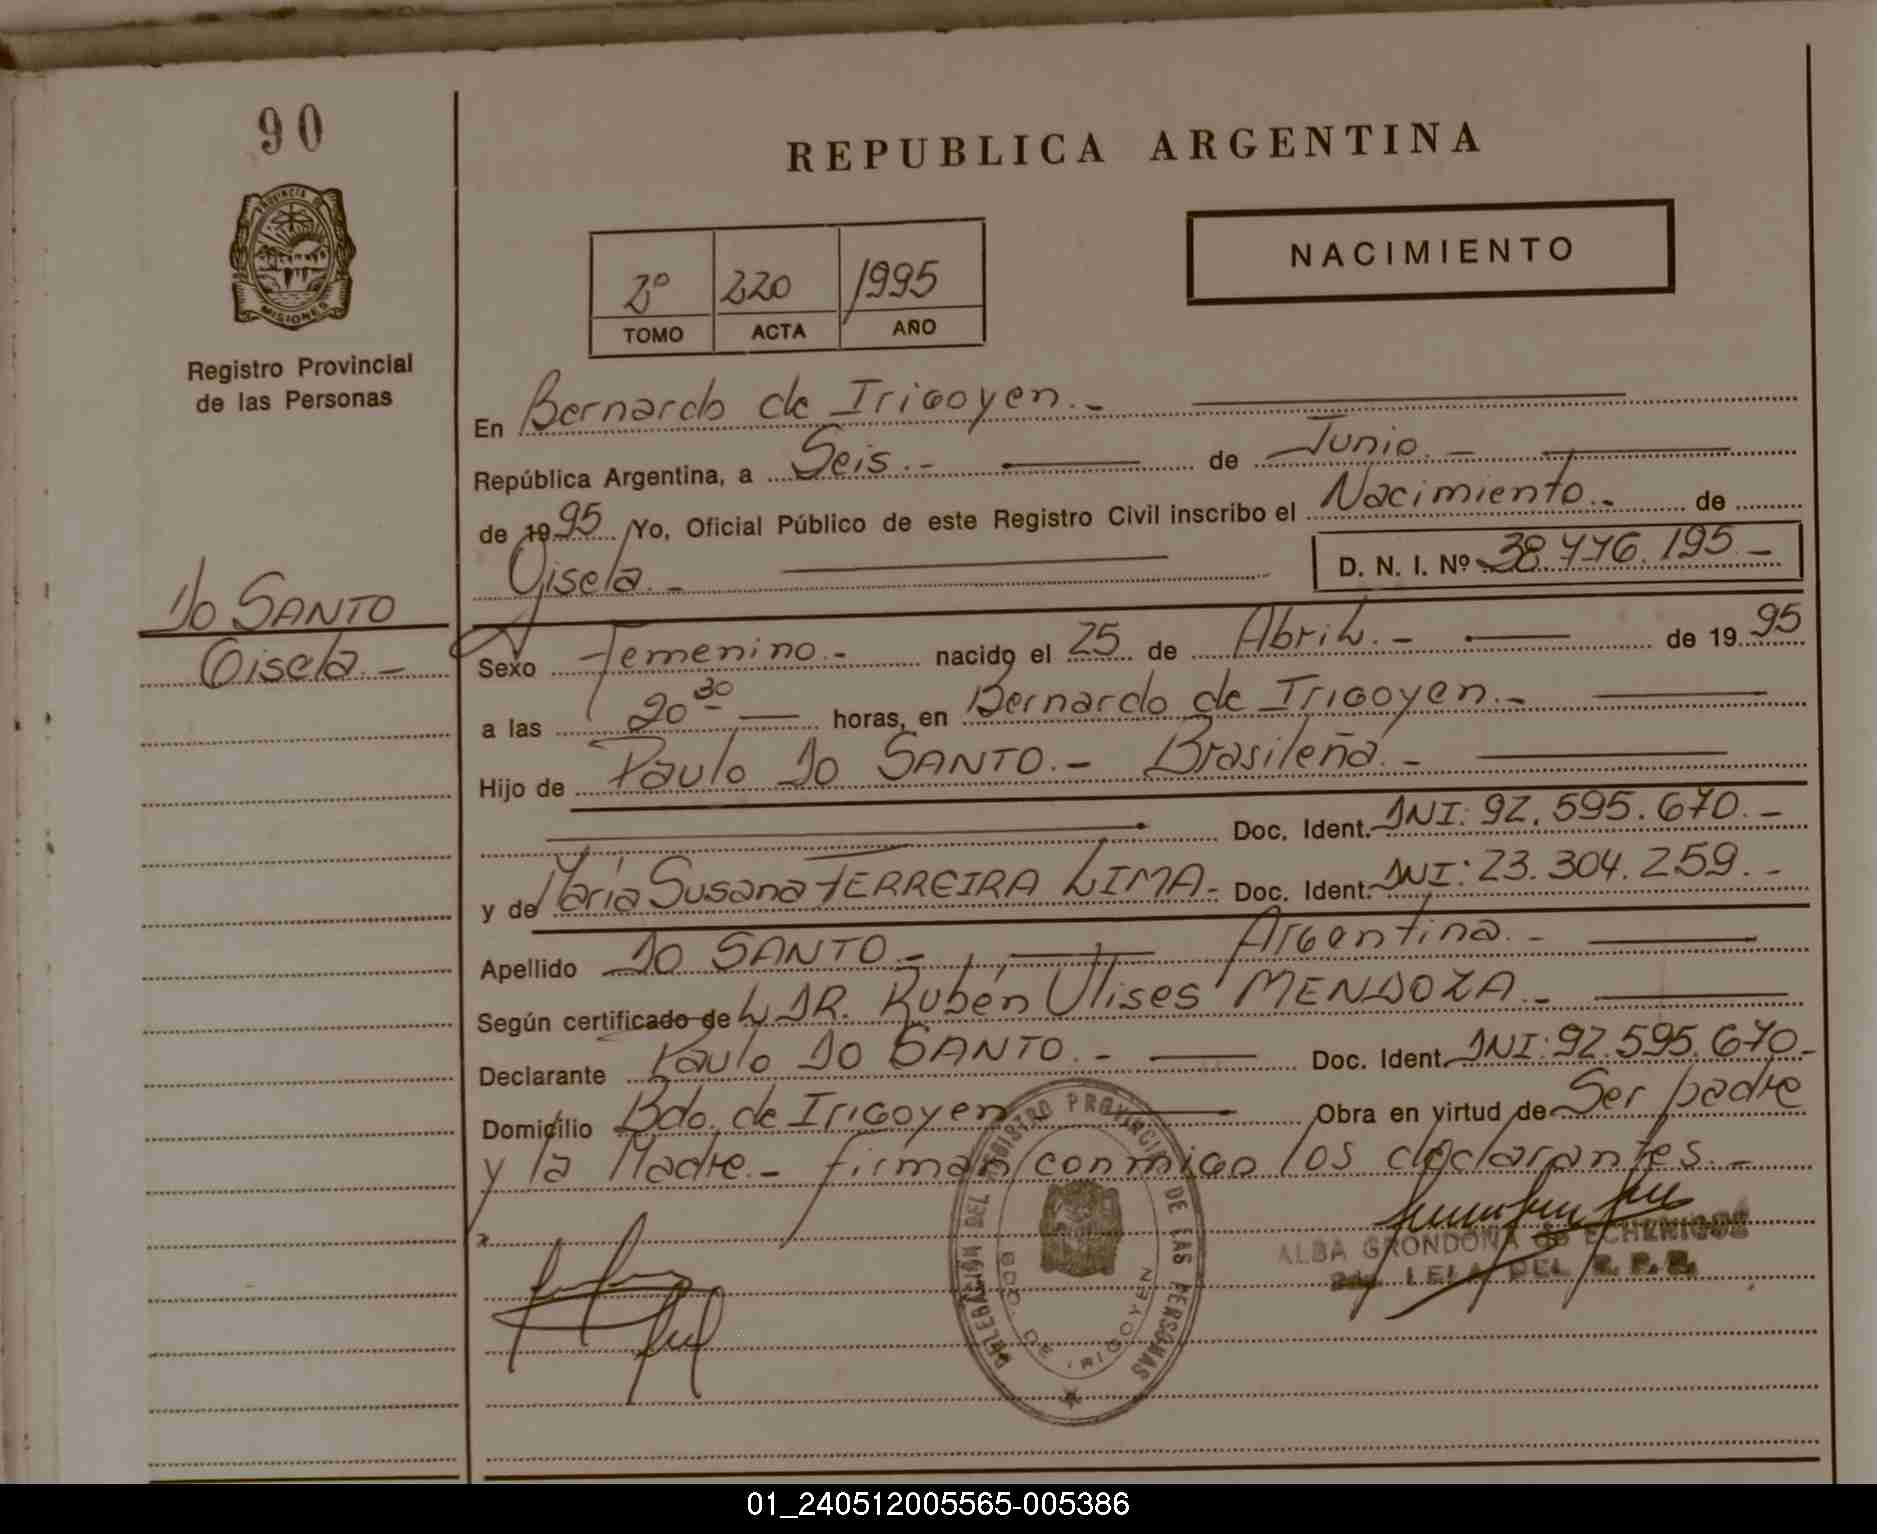 90
REPUBLICA ARGENTINA
PROVINCIA DE
MISIONES
Registro Provincial
de las Personas
NACIMIENTO
2º 220 1995
TOMO ACTA AÑO
En Bernardo de Irigoyen.-
República Argentina, a Seis.- de Junio.-
de 1995 Yo, Oficial Público de este Registro Civil inscribo el Nacimiento.- de
Gisela.- D. N. I. Nº 38.776.195.-
DO SANTO
Gisela.-
Sexo Femenino.- nacido el 25 de Abril.- de 1995
a las 20 30 horas, en Bernardo de Irigoyen.-
Hijo de Paulo DO SANTO.- Brasileña.-
Doc. Ident. DNI: 92.595.670.-
y de María Susana FERREIRA LIMA.- Doc. Ident. DNI: 23.304.259.-
Apellido DO SANTO.- Argentina.-
Según certificado de L DR. Rubén Ulises MENDOZA.-
Declarante Paulo DO SANTO.- Doc. Ident. DNI: 92.595.670.-
Domicilio Bdo. de Irigoyen.- Obra en virtud de Ser padre
y la Madre.- firman conmigo los declarantes.-
REGISTRO PROVINCIAL DE LAS PERSONAS
BDO. DE IRIGOYEN
ALBA GRONDONA de ECHENIGUE
DEL R. P. P.
01_240512005565-005386